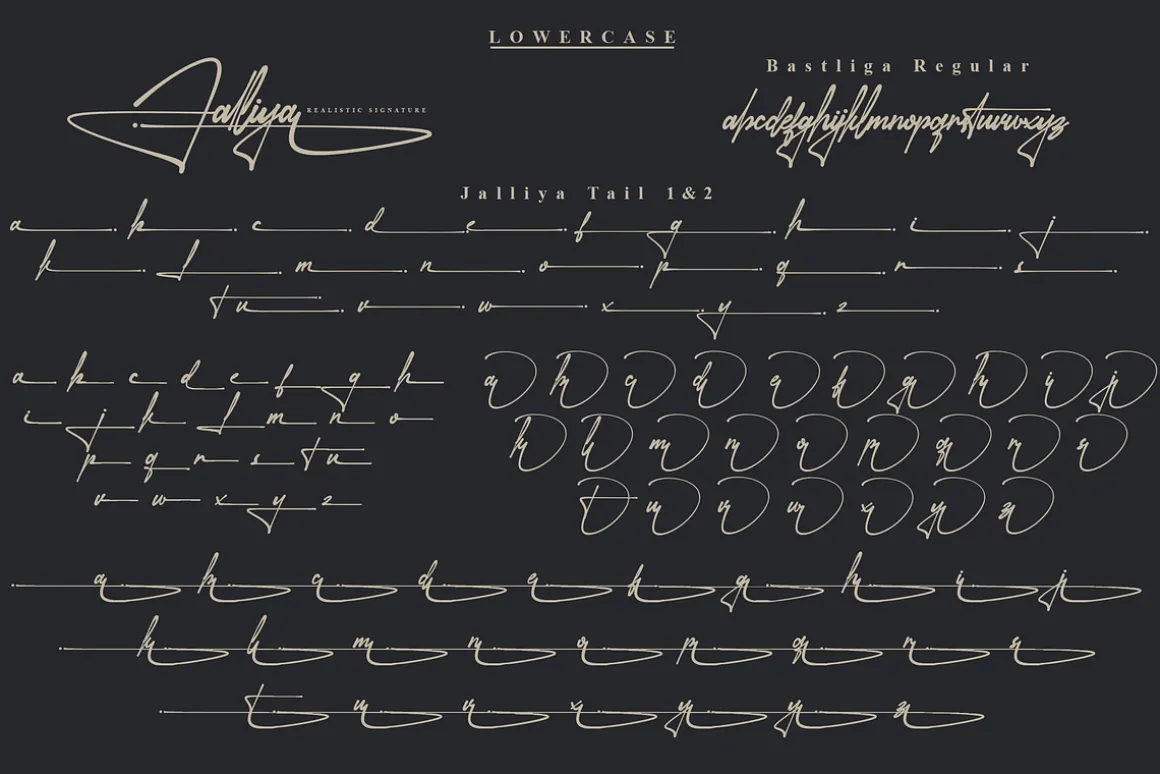 LOWERCASE
Bastliga Regular
Jalliya REALISTIC SIGNATURE
abcdefghijklmnopqrstuvwxyz
Jalliya Tail 1&2
a b c d e f g h i j
k l m n o p q r s
t u v w x y z
a b c d e f g h
i j k l m n o
p q r s t u
v w x y z
a b c d e f g h i j
k l m n o p q r s
t u v w x y z
a b c d e f g h i j
k l m n o p q r s
t u v x y y z